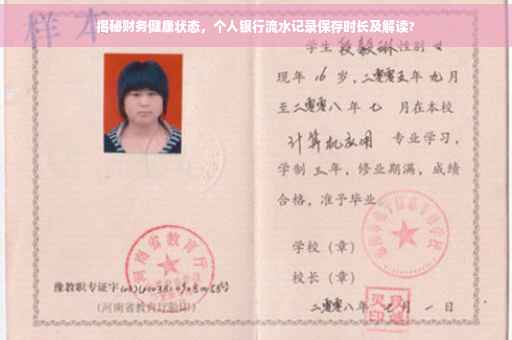 揭秘财务健康状态，个人银行流水记录保存时长及解读？
样本
学生段毅琳性别女
现年16岁，二零零五年九月
至二零零八年七月在本校
计算机应用 专业学习，
学制三年，修业期满，成绩
合格，准予毕业。
学校（章）
校长（章）
二零零八年 月一日
河南省教育厅
豫教职专证字
(河南省教育厅验印)